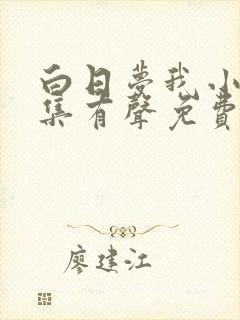 白日夢我小
集有聲免費
廖建江